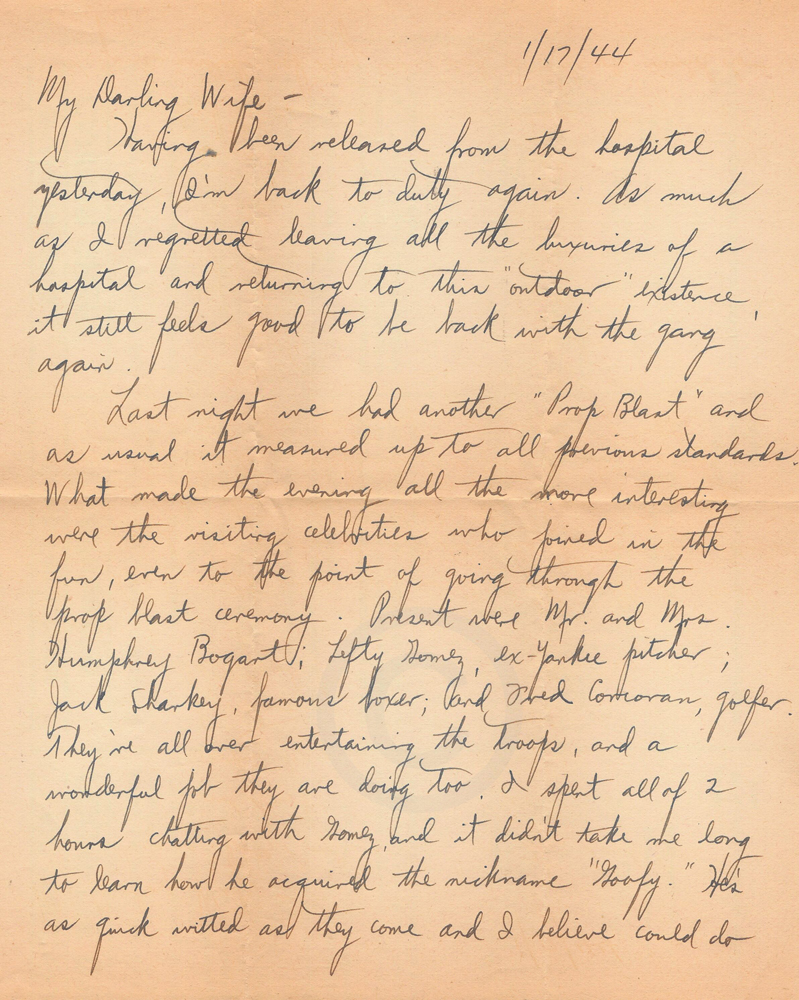 1/17/44
My Darling Wife –
Having been released from the hospital
yesterday, I'm back to duty again. As much
as I regretted leaving all the luxuries of a
hospital and returning to this "outdoor" existence,
it still feels good to be back with the gang
again.
Last night we had another "Prop Blast" and
as usual it measured up to all previous standards.
What made the evening all the more interesting
were the visiting celebrities who joined in the
fun, even to the point of going through the
prop blast ceremony. Present were Mr. and Mrs.
Humphrey Bogart; Lefty Gomez, ex-Yankee pitcher;
Jack Sharkey, famous boxer; and Fred Corcoran, golfer.
They're all over entertaining the troops, and a
wonderful job they are doing too. I spent all of 2
hours chatting with Gomez, and it didn't take me long
to learn how he acquired the nickname "Goofy." He's
as quick witted as they come and I believe could do